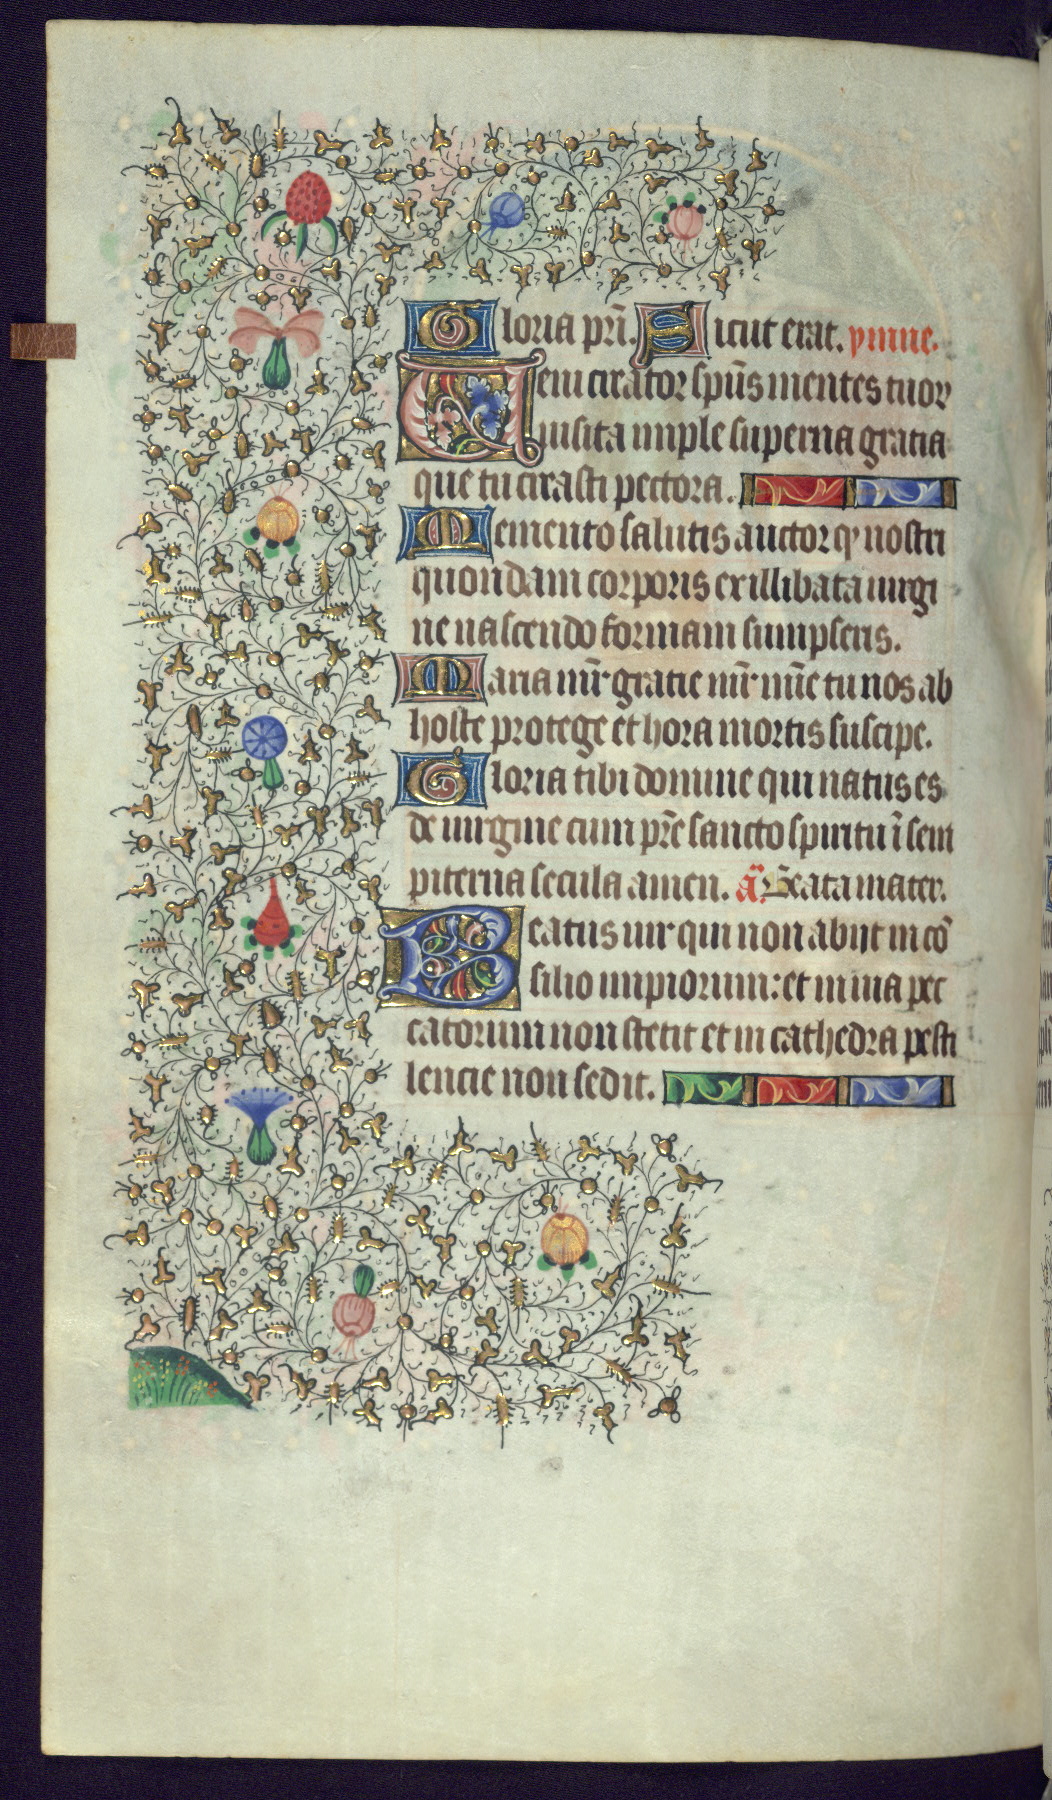 Gloria pr̄i. Sicut erat. ymne.
Ueni creator sp̄us mentes tuor
uisita imple superna gratia
que tu creasti pectora.
Memento salutis auctor qͥ nostri
quondam corporis ex illibata uirgi
ne nascendo formam sumpseris.
Maria mr̄ gratie mr̄ mīe tu nos ab
hoste protege et hora mortis suscipe.
Gloria tibi domine qui natus es
de uirgine cum pr̄e sancto spiritu ī sem
piterna secula amen. an̄. Beata mater.
Beatus uir qui non abijt in cō
silio impiorum: et in uia pec
catorum non stetit et in cathedra pesti
lencie non sedit.